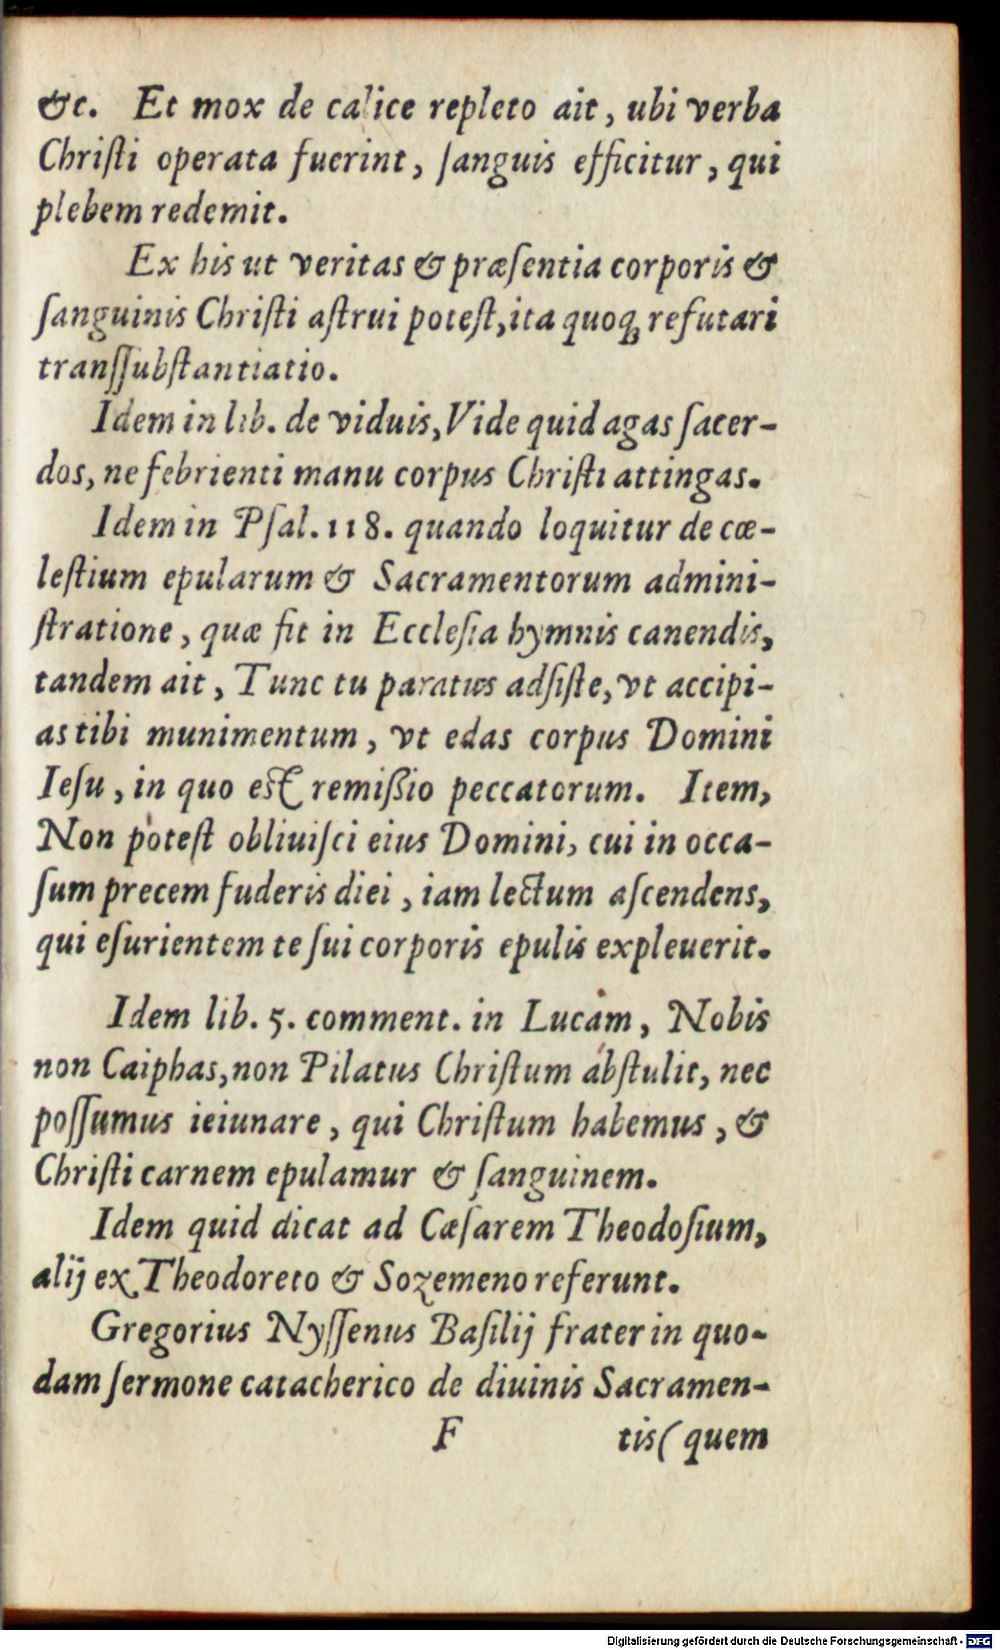 &c. Et mox de calice repleto ait, ubi verba
Chriſti operata fuerint, ſanguis efficitur, qui
plebem redemit.
Ex his ut veritas & præſentia corporis &
ſanguinis Chriſti aſtrui poteſt, ita quoq; refutari
tranſſubſtantiatio.
Idem in lib. de viduis, Vide quid agas ſacer-
dos, ne febrienti manu corpus Chriſti attingas.
Idem in Pſal. 118. quando loquitur de cœ-
leſtium epularum & Sacramentorum admini-
ſtratione, quæ fit in Eccleſia hymnis canendis,
tandem ait, Tunc tu paratus adſiſte, vt accipi-
as tibi munimentum, vt edas corpus Domini
Ieſu, in quo est remißio peccatorum. Item,
Non poteſt obliuiſci eius Domini, cui in occa-
ſum precem fuderis diei, iam lectum aſcendens,
qui eſurientem te ſui corporis epulis expleuerit.
Idem lib. 5. comment. in Lucam, Nobis
non Caiphas, non Pilatus Chriſtum abſtulit, nec
poſſumus ieiunare, qui Chriſtum habemus, &
Chriſti carnem epulamur & ſanguinem.
Idem quid dicat ad Cæſarem Theodoſium,
alij ex Theodoreto & Sozemeno referunt.
Gregorius Nyſſenus Baſilij frater in quo-
dam ſermone catacherico de diuinis Sacramen-
F tis (quem
Digitalisierung gefördert durch die Deutsche Forschungsgemeinschaft - DFG